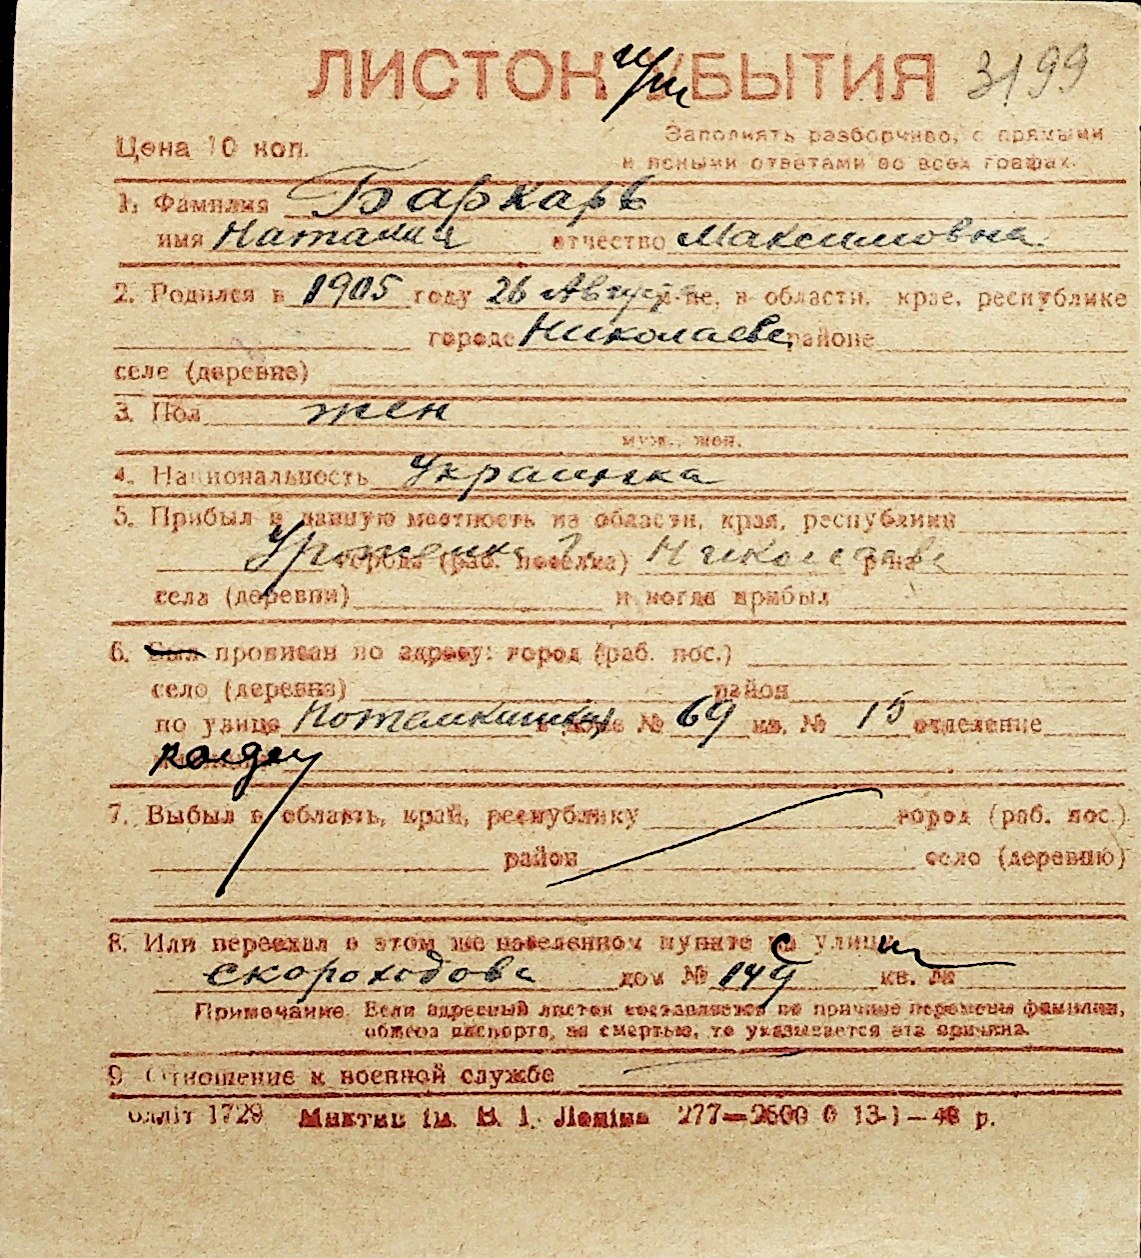 ЛИСТОК УБЫТИЯ 3199
Цена 10 коп.
Заполнять разборчиво, с прямыми
и ясными ответами во всех графах.
1. Фамилия Баркарь
имя Наталия отчество Максимовна
2. Родился в 1905 году 26 Августа м-це, в области, крае, республике
городе Николаеве районе
селе (деревне)
3. Пол жен
муж., жен.
4. Национальность Украинка
5. Прибыл в данную местность из области, края, республики
Уроженка г. города (раб. поселка) Николаева р-на
села (деревни) и когда прибыл
6. Был прописан по адресу: город (раб. пос.)
село (деревня) район
по улице доме № 69 кв. № 15 отделение
7. Выбыл в область, край, республику город (раб. пос.)
район село (деревню)
8. Или переехал в этом же населенном пункте на улицу
Скороходова дом № 149 кв. №
Примечание. Если адресный листок составляется по причине перемены фамилии,
обмена паспорта, за смертью, то указывается эта причина.
9. Отношение к военной службе
1729 ім. В. І. Леніна 277—2500 0 13-1—48 р.